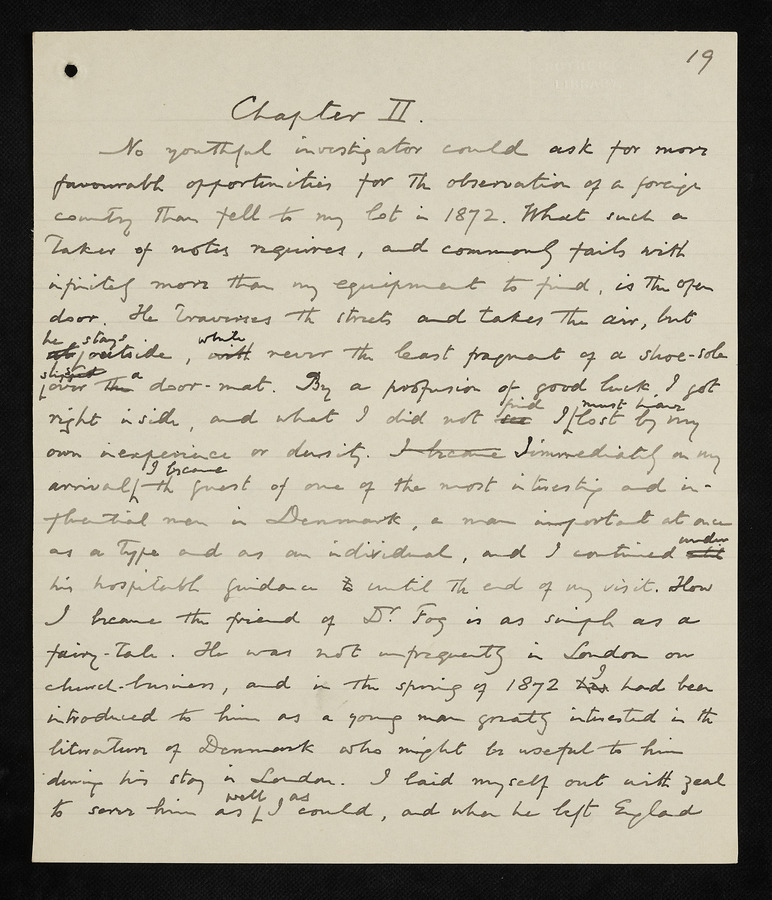 19
Chapter II.
No youthful investigator could ask for more
favourable opportunities for the observation of a foreign
country than fell to my lot in 1872. What such a
taker of notes requires, and commonly fails with
infinitely more than my equipment to find, is the open
door. He traverses the streets and takes the air, but
he stays while
outside, with never the least fragment of a shoe-sole
a
over the door-mat. By a profusion of good luck I got
find must have
right inside, and what I did not see I lost by my
own inexperience or density. I became Immediately on my
I became
arrival the guest of one of the most interesting and in-
fluential men in Denmark, a man important at once
under
as a type and as an individual, and I continued
his hospitable guidance to until the end of my visit. How
I became the friend of Dr. Fog is as simple as a
fairy-tale. He was not infrequently in London on
I
church-business, and in the spring of 1872 had been
introduced to him as a young man greatly interested in the
literature of Denmark who might be useful to him
during his stay in London. I laid myself out with zeal
well as
to serve him as I could, and when he left England